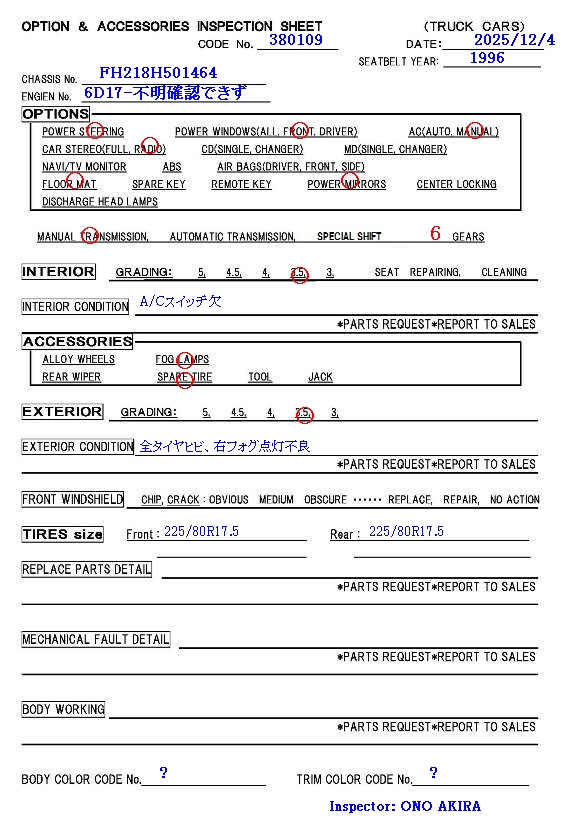 OPTION & ACCESSORIES INSPECTION SHEET (TRUCK CARS)
CODE No. 380109 DATE: 2025/12/4
SEATBELT YEAR: 1996
CHASSIS No. FH218H501464
ENGIEN No. 6D17-不明確認できず
OPTIONS
POWER STEERING POWER WINDOWS(ALL, FRONT, DRIVER) AC(AUTO, MANUAL)
CAR STEREO(FULL, RADIO) CD(SINGLE, CHANGER) MD(SINGLE, CHANGER)
NAVI/TV MONITOR ABS AIR BAGS(DRIVER, FRONT, SIDE)
FLOOR MAT SPARE KEY REMOTE KEY POWER MIRRORS CENTER LOCKING
DISCHARGE HEAD LAMPS
MANUAL TRANSMISSION, AUTOMATIC TRANSMISSION, SPECIAL SHIFT 6 GEARS
INTERIOR GRADING: 5, 4.5, 4, 3.5, 3, SEAT REPAIRING, CLEANING
INTERIOR CONDITION A/Cスイッチ欠
*PARTS REQUEST*REPORT TO SALES
ACCESSORIES
ALLOY WHEELS FOG LAMPS
REAR WIPER SPARE TIRE TOOL JACK
EXTERIOR GRADING: 5, 4.5, 4, 3.5, 3,
EXTERIOR CONDITION 全タイヤヒビ、右フォグ点灯不良
*PARTS REQUEST*REPORT TO SALES
FRONT WINDSHIELD CHIP, CRACK : OBVIOUS MEDIUM OBSCURE ······ REPLACE, REPAIR, NO ACTION
TIRES size Front : 225/80R17.5 Rear : 225/80R17.5
REPLACE PARTS DETAIL
*PARTS REQUEST*REPORT TO SALES
MECHANICAL FAULT DETAIL
*PARTS REQUEST*REPORT TO SALES
BODY WORKING
*PARTS REQUEST*REPORT TO SALES
BODY COLOR CODE No. ? TRIM COLOR CODE No. ?
Inspector: ONO AKIRA